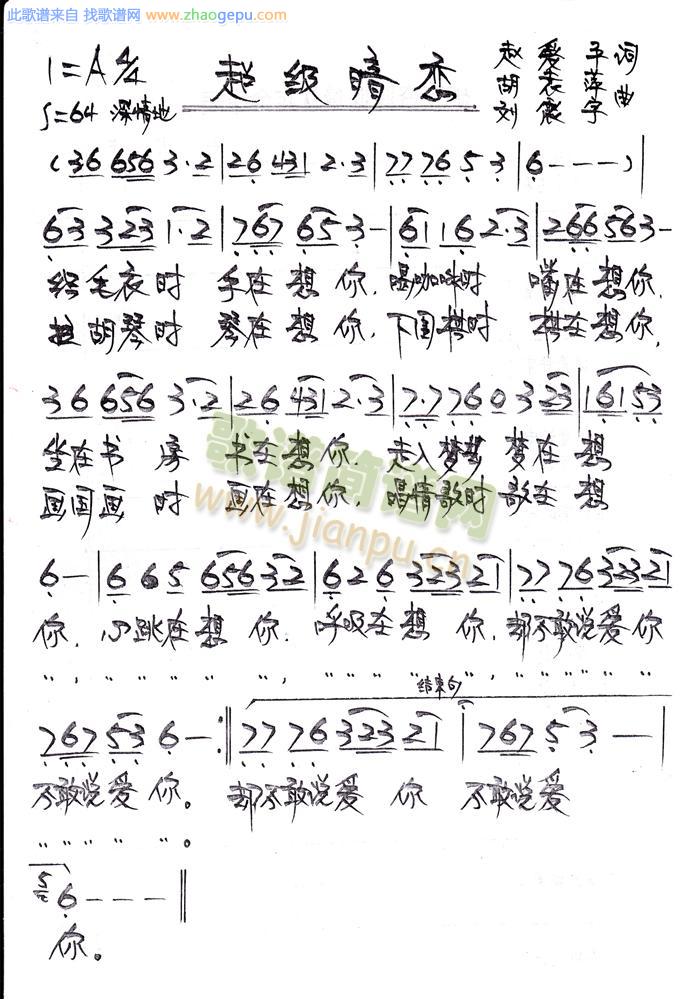 此歌谱来自 找歌谱网 www.zhaogepu.com
1=A 4/4 超级暗恋 赵爱平 词
胡表萍
刘宸宇 曲
♩=64 深情地
(36 656 3·2|26 431 2·3|77 76 5 3|6---)|
63 323 1·2|767 65 3-|61 16 2·3|266 563-
织毛衣时 手在想你,喝咖啡时 嘴在想你,
拉胡琴时 琴在想你,下围棋时 棋在想你,
36 656 3·2|26 431 2·3|7·7 76 0 3 23|161 53
坐在书房 书在想你,走入梦乡 梦在想
画国画时 画在想你,唱情歌时 歌在想
6-|6 65 656 32|6 2 6 323 21|77 76 323 21
你,心跳在想你,呼吸在想你,却不敢说爱你
"","""""","""""","""""""
结束句
767 53 6-:||77 76 323 21|767 5 3--|
不敢说爱你。却不敢说爱你 不敢说爱
"""""。
5 6---||
你。
歌谱简谱网
www.jianpu.cn